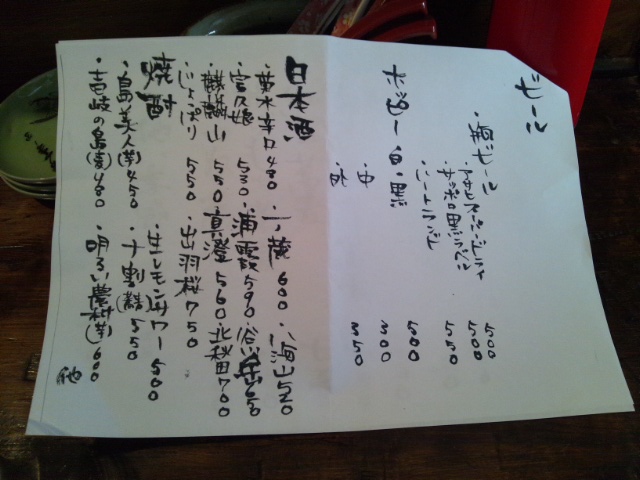 ビール
・瓶ビール
アサヒスーパードライ 500
サッポロ黒ラベル 500
・ハートランド 550
ホッピー 白・黒 500
・中 300
・外 350
日本酒
・菊水辛口 430 ・一ノ蔵 600 ・八海山 520
・宮乃娘 530 ・浦霞 590
・麒麟山 550 ・真澄 560 ・北秋田 700
・じょっぱり 550 ・出羽桜 750
焼酎 ・生レモンサワー 500
・島美人(芋) 450 ・十割(蕎麦) 550
・壱岐の島(麦) 480 ・明るい農村(芋) 600
他